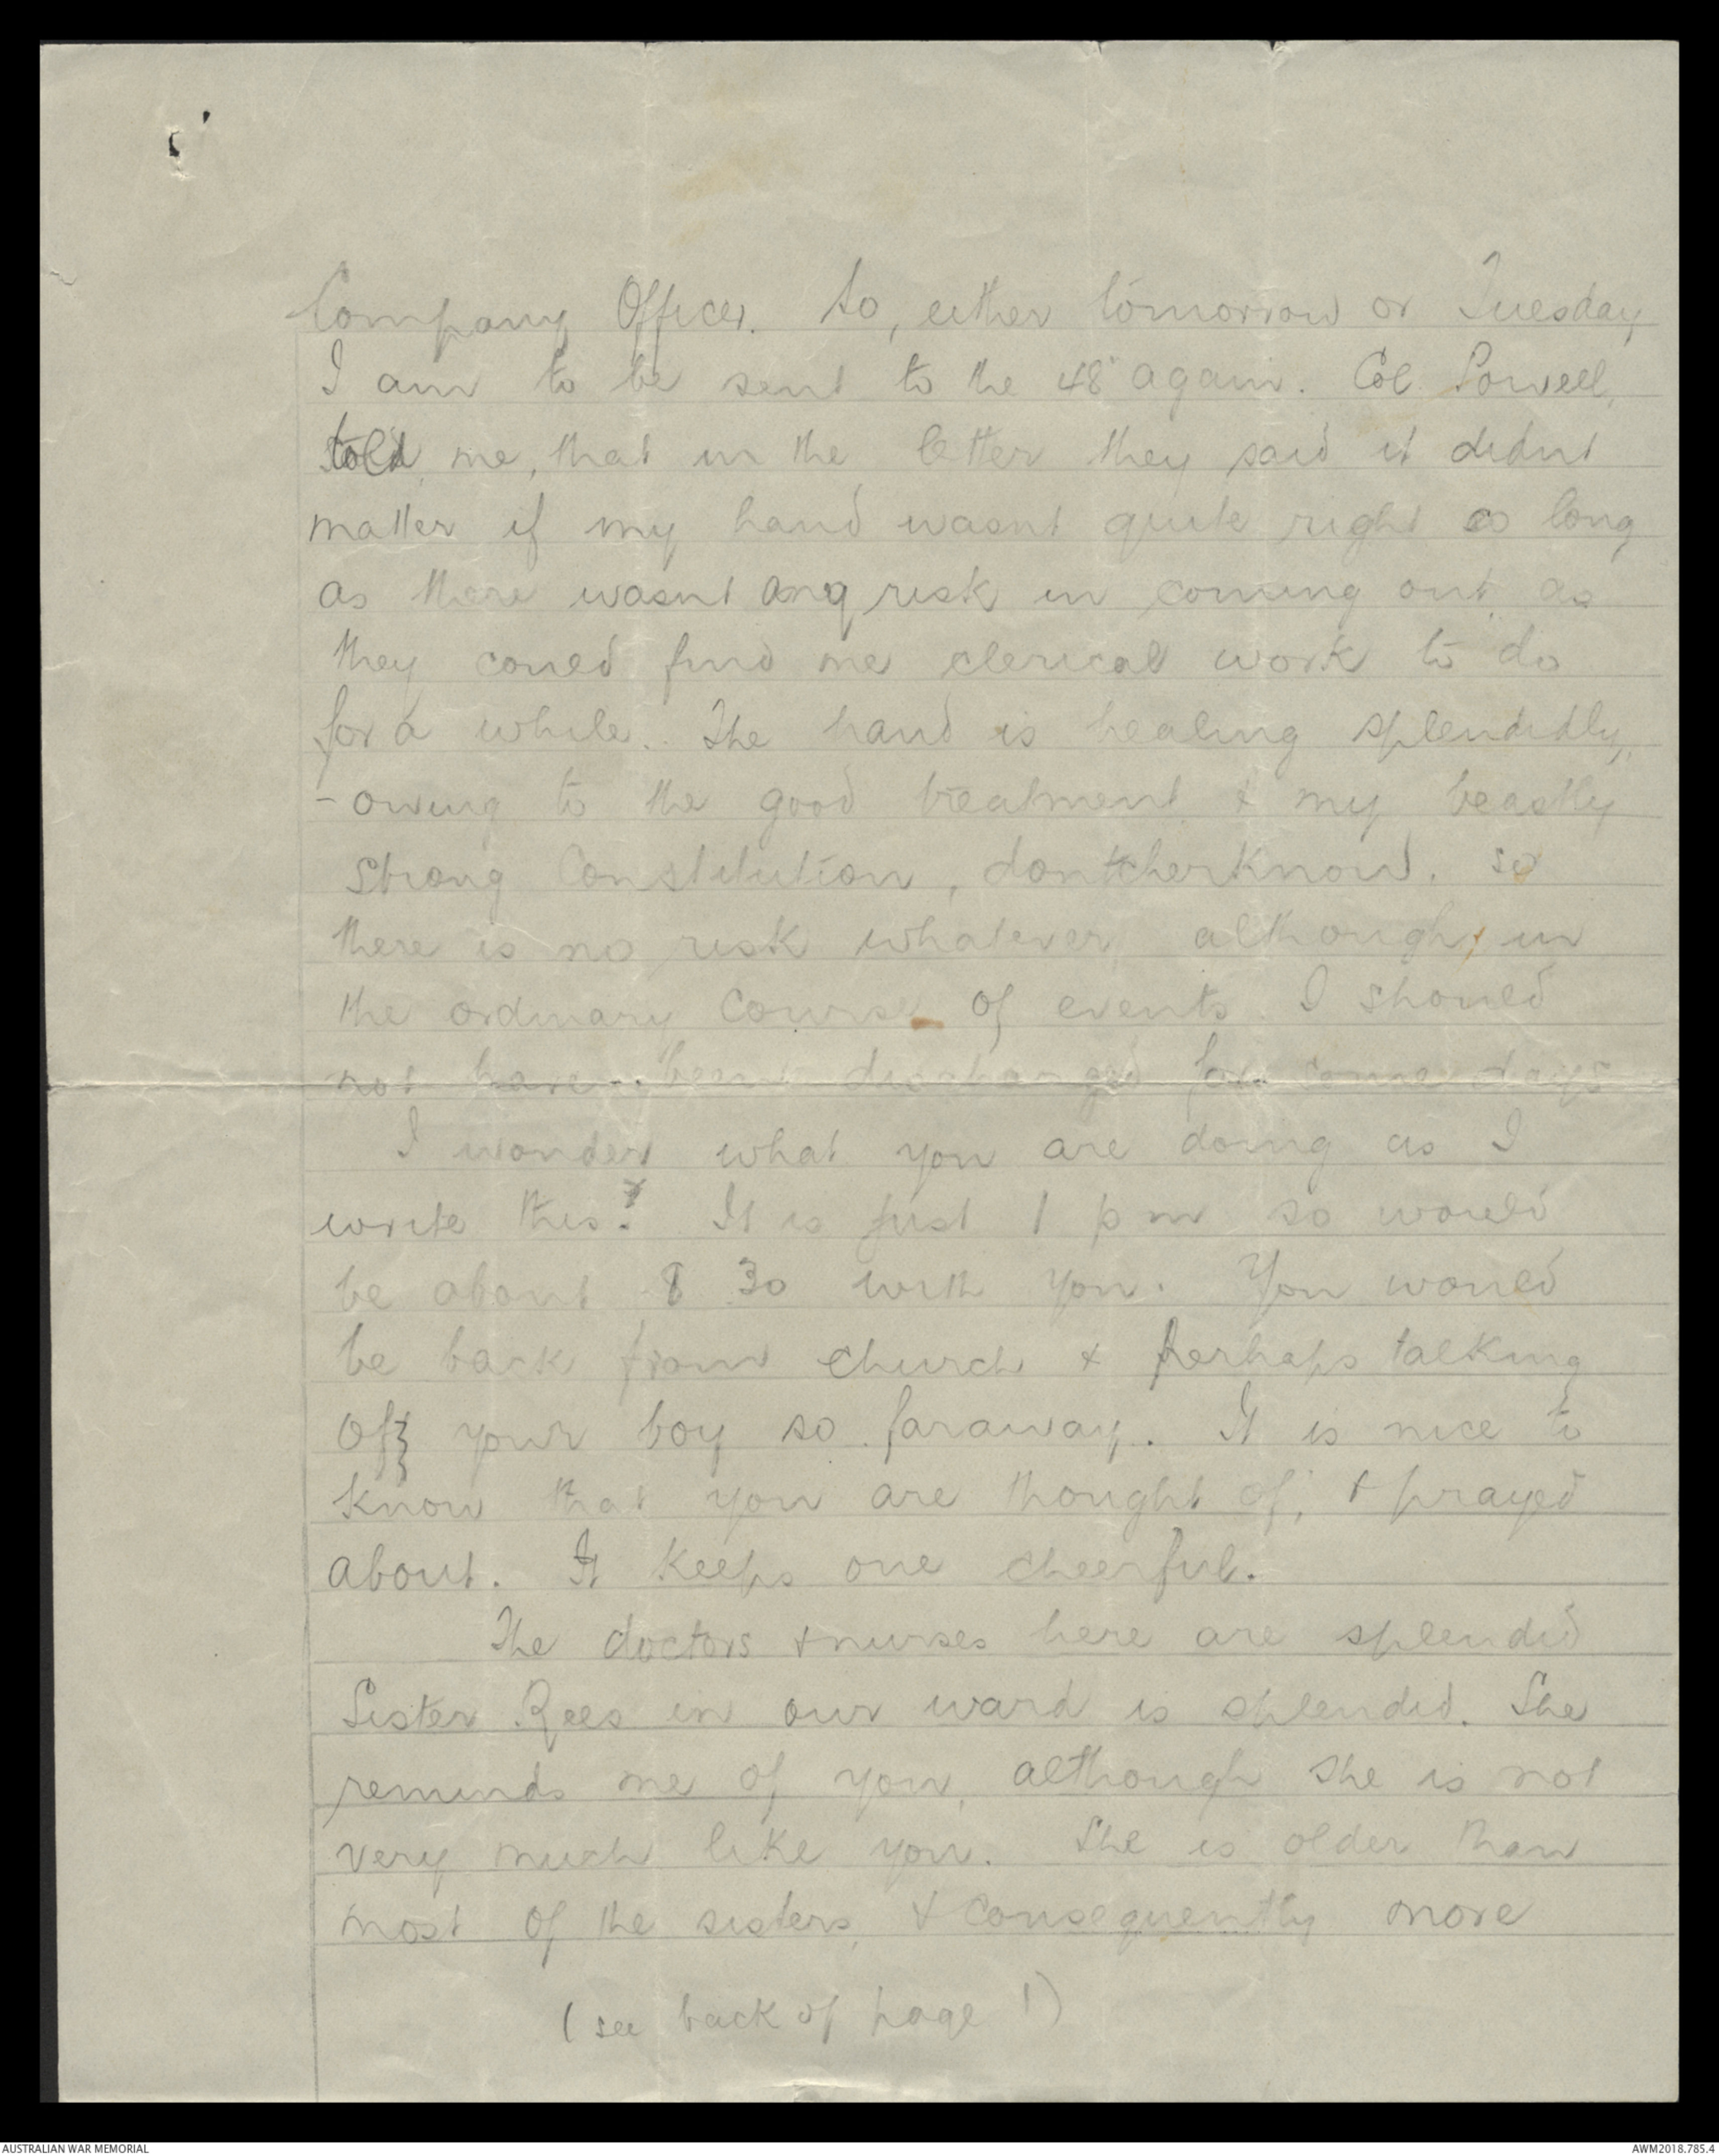 Company Officer. So, either tomorrow or Tuesday
I am to be sent to the 48" again. Col. Powell,
told me, that in the letter they said it didnt
matter if my hand wasnt quite right so long
as there wasnt any risk in coming out, as
they could find me clerical work to do
for a while. The hand is healing splendidly,
- owing to the good treatment & my beastly
strong Constitution, dontcherknow. so
there is no risk whatever, although, in
the ordinary course of events I should
not have been discharged for some days
I wonder what you are doing as I
write this? It is just 1 pm so would
be about 8 30 with you. You would
be back from church & perhaps talking
of your boy so faraway. It is nice to
know that you are thought of, & prayed
about. It keeps one cheerful.
The doctors & nurses here are splendid
Sister Rees in our ward is splendid. She
reminds me of you, although she is not
very much like you. She is older than
most of the sisters, & consequently more
(see back of page 1)
AUSTRALIAN WAR MEMORIAL
AWM2018.785.4